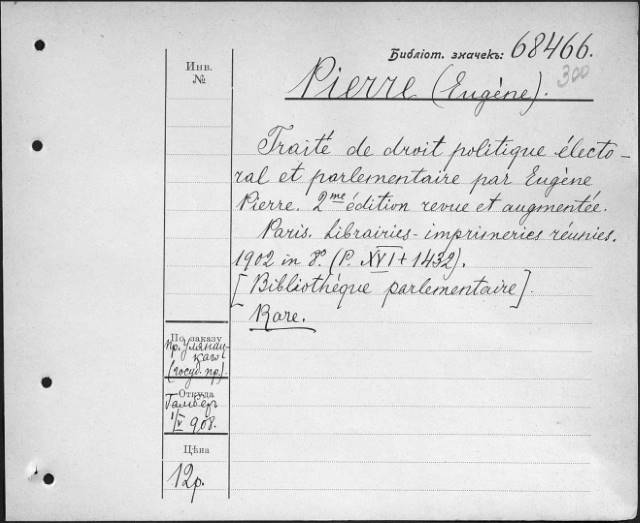 Библіот. значекъ: 68466.
300
Инв.
№
Pierre (Eugène).
Traité de droit politique électo-
ral et parlementaire par Eugène
Pierre. 2me édition revue et augmentée.
Paris. Librairies-imprimeries réunies.
1902 in 8º. (P. XVI + 1432).
[Bibliothéque parlementaire].
Rare.
По заказу
пр. Уляниц-
каго
(госуд. пр.).
Откуда
Гамбер
1/V 908.
Цѣна
12р.